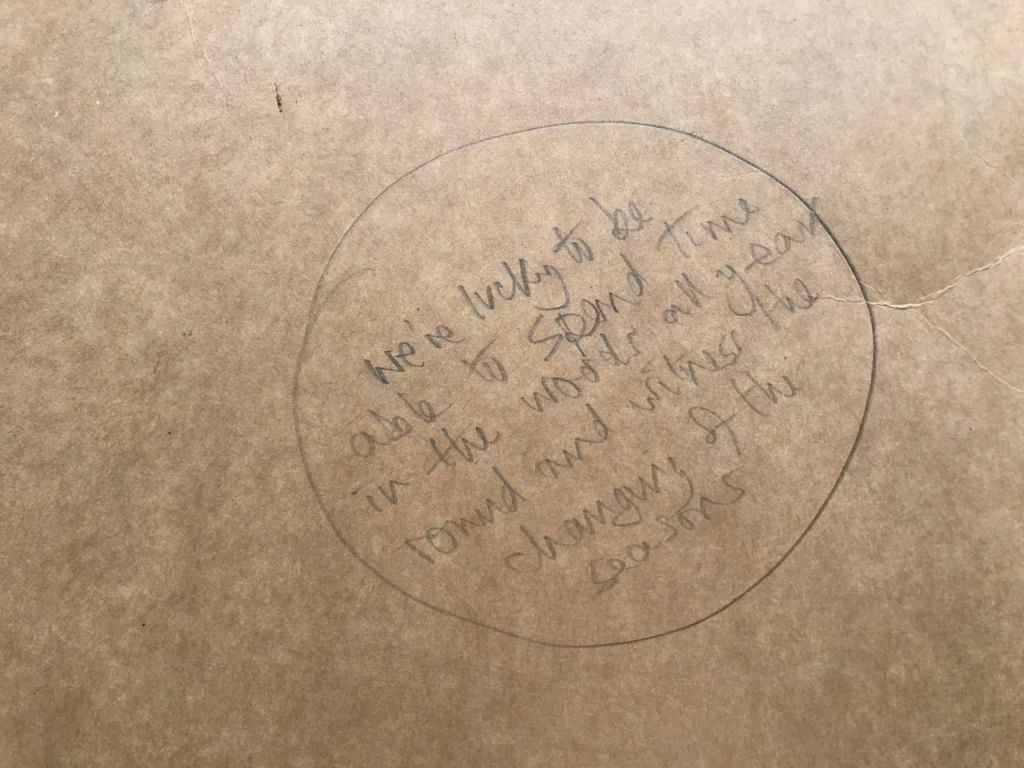 we're lucky to be
able to spend time
in the woods all year
round and witness the
changing of the
seasons